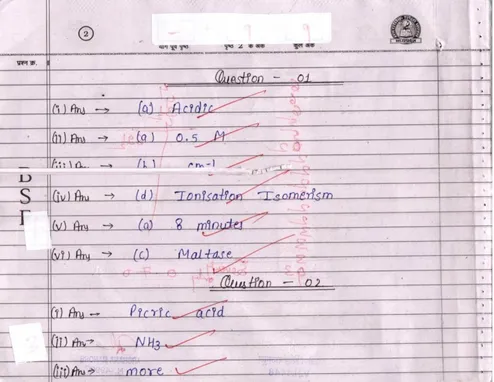 2
9 9
पृष्ठ 2 के अंक
प्रश्न क्र.
Question - 01
(i) Ans → (a) Acidic
(ii) Ans → (a) 0.5 M
(iii) → (b) cm-1
B
S (iv) Ans → (d) Ionisation Isomerism
(v) Ans → (a) 8 minutes
(vi) Ans → (c) Maltase
Question - 02
(i) Ans → Picric acid
(ii) Ans → NH3
(iii) Ans → more